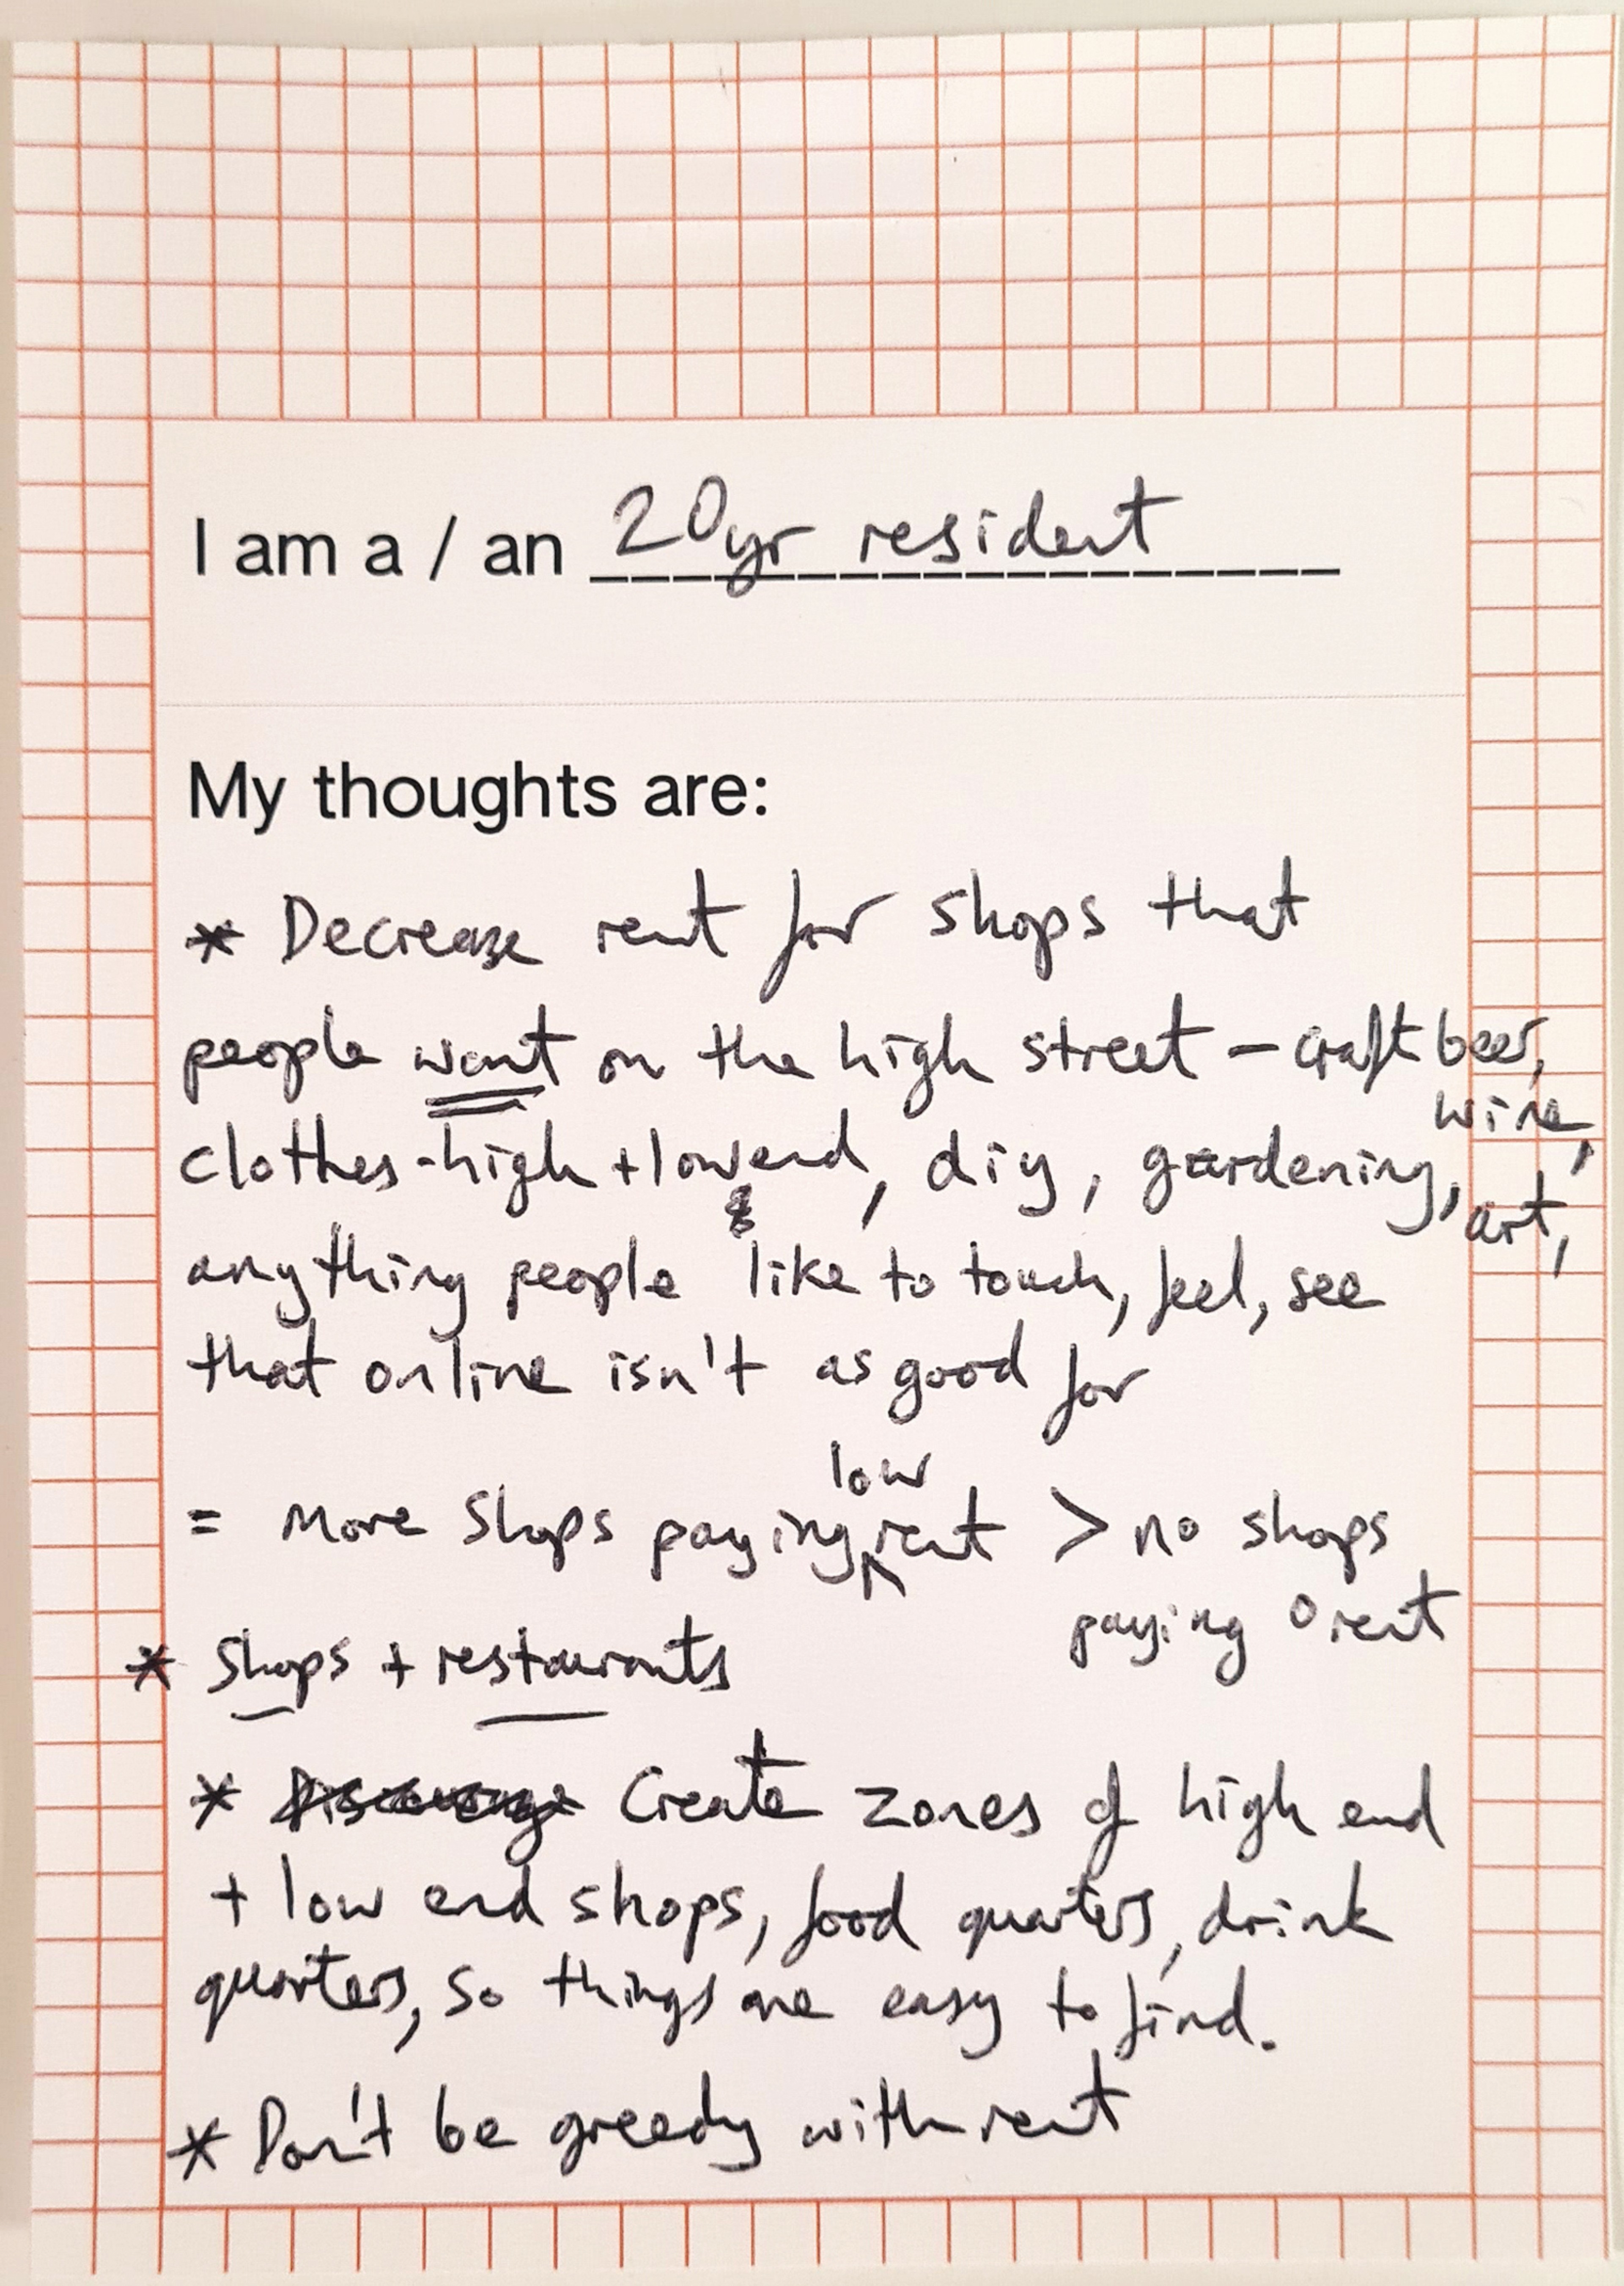 I am a / an 20yr resident
My thoughts are:
* Decrease rent for shops that
people want on the high street - craft beer,
wine,
clothes - high + low end, diy, gardening, art,
anything people like to touch, feel, see
that online isn't as good for
= More shops paying low rent > no shops
paying 0 rent
* Shops + restaurants
* Create zones of high end
+ low end shops, food quarters, drink
quarters, so things are easy to find.
* Don't be greedy with rent